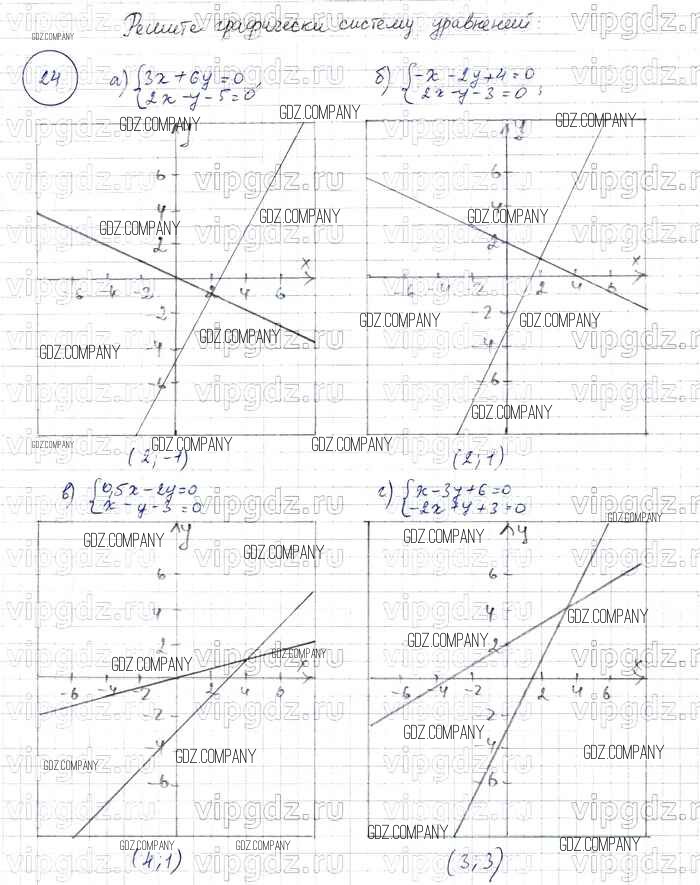 Решите графически систему уравнений:
24 а) {3x+6y=0, б) {-x-2y+4=0
{2x-y-5=0 {2x-y-3=0;
y y
6 6
4 4
2 2
x x
-6 -4 -2 2 4 6 -6 -4 -2 2 4 6
-2 -2
-4 -4
-6 -6
(2;-1) (2;1)
в) {0,5x-2y=0 г) {x-3y+6=0
{x-y-3=0 {-2x+y+3=0
y y
6 6
4 4
2 2
x x
-6 -4 -2 2 4 6 -6 -4 -2 2 4 6
-2 -2
-4 -4
-6 -6
(4;1) (3,3)
GDZ.COMPANY
vipgdz.ru